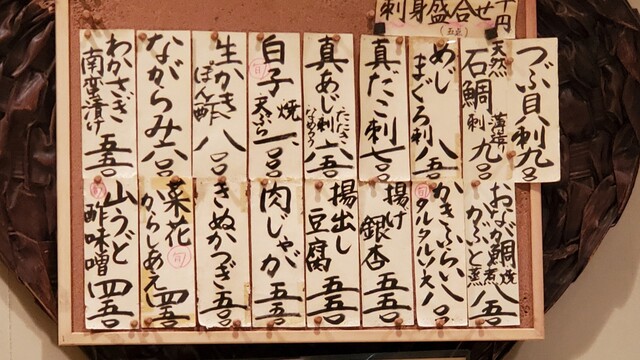 刺身盛合せ
千円
つぶ貝刺九〇〇
天然石鯛刺
薄造り
九〇〇
めじまぐろ刺八五〇
真だこ刺七〇〇
真あじ刺
たたき
なめろう
六五〇
白子
焼
天ぷら
生かき
ぽん酢
八〇〇
ながらみ六〇〇
わかさぎ
南蛮漬け
五五〇
おなが鯛
焼
かぶと煮
八五〇
かきふらい
タルタルソース
揚げ銀杏五五〇
揚出し豆腐五五〇
肉じゃが五五〇
きぬかつぎ五五〇
菜花
からしあえ
旬
四五〇
山うど
酢味噌
四五〇